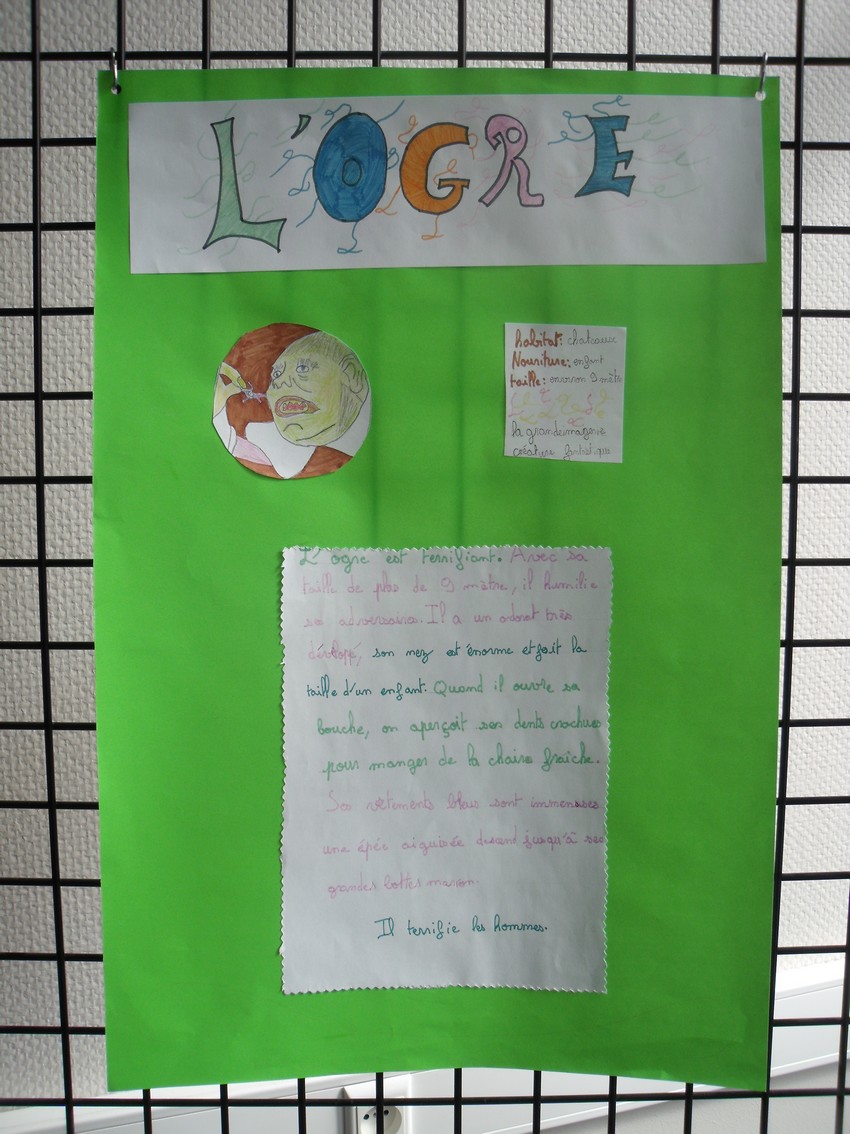 L'OGRE
habitat: chateaux
Nouriture: enfant
taille: environ 9 mètr
la grande imagerie
créature fantastique
L'ogre est terrifiant. Avec sa
taille de plus de 9 mètre, il humilie
ses adversaires. Il a un odorat très
dévloppé, son nez est énorme et fait la
taille d'un enfant. Quand il ouvre sa
bouche, on aperçoit ses dents crochues
pour manger de la chaire fraîche.
Ses vêtements bleus sont immenses
une épée aiguisée descend jusqu'à ses
grandes bottes marron.
Il terrifie les hommes.